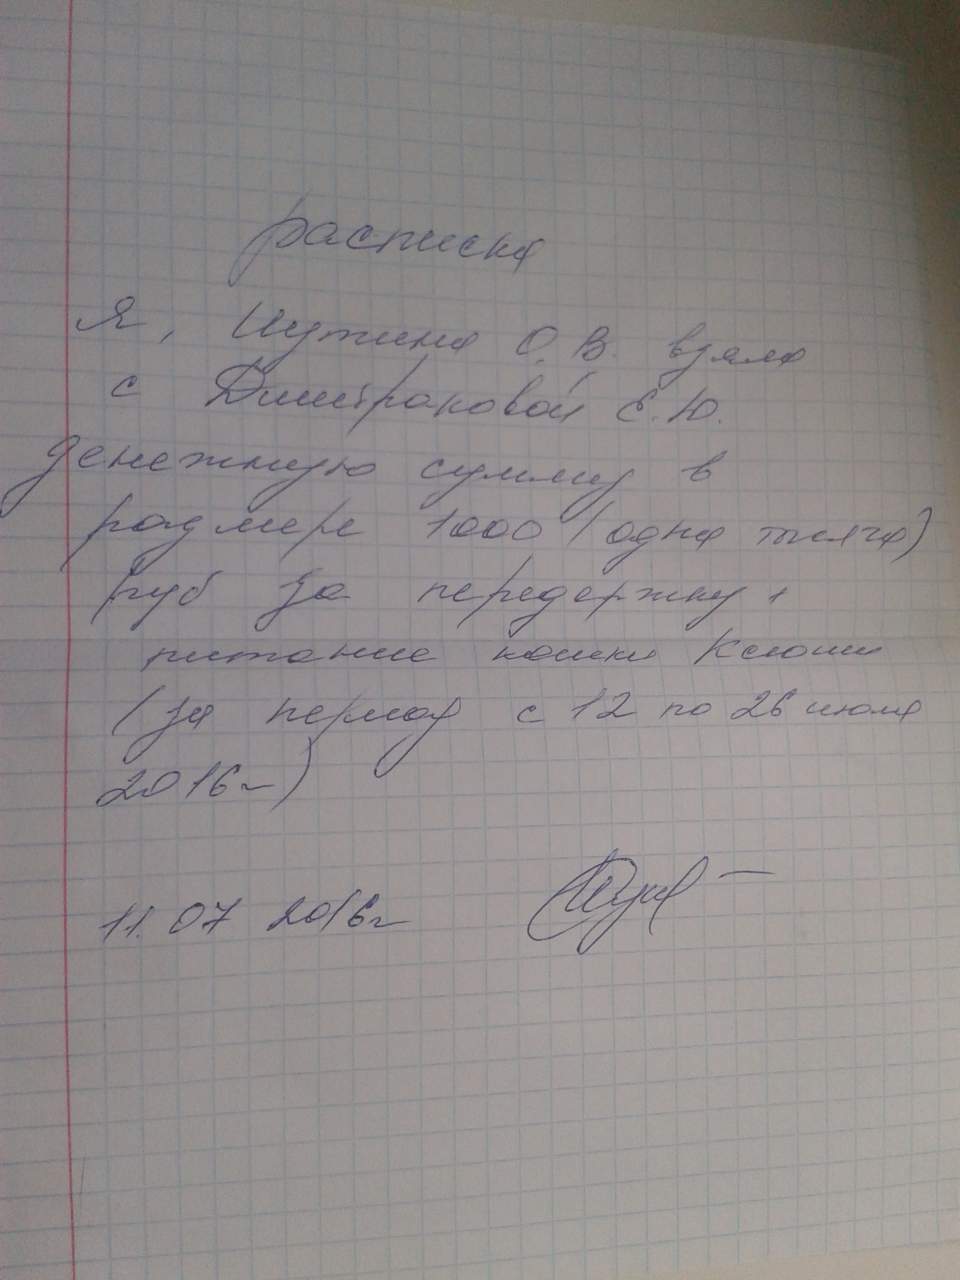 расписка
Я, Шутина О.В. взяла
с Дмитраковой Е.Ю.
денежную сумму в
размере 1000 (одна тысяча)
руб за передержку и
питание кошки Ксюши
(за период с 12 по 26 июля
2016г)
11.07 2016г